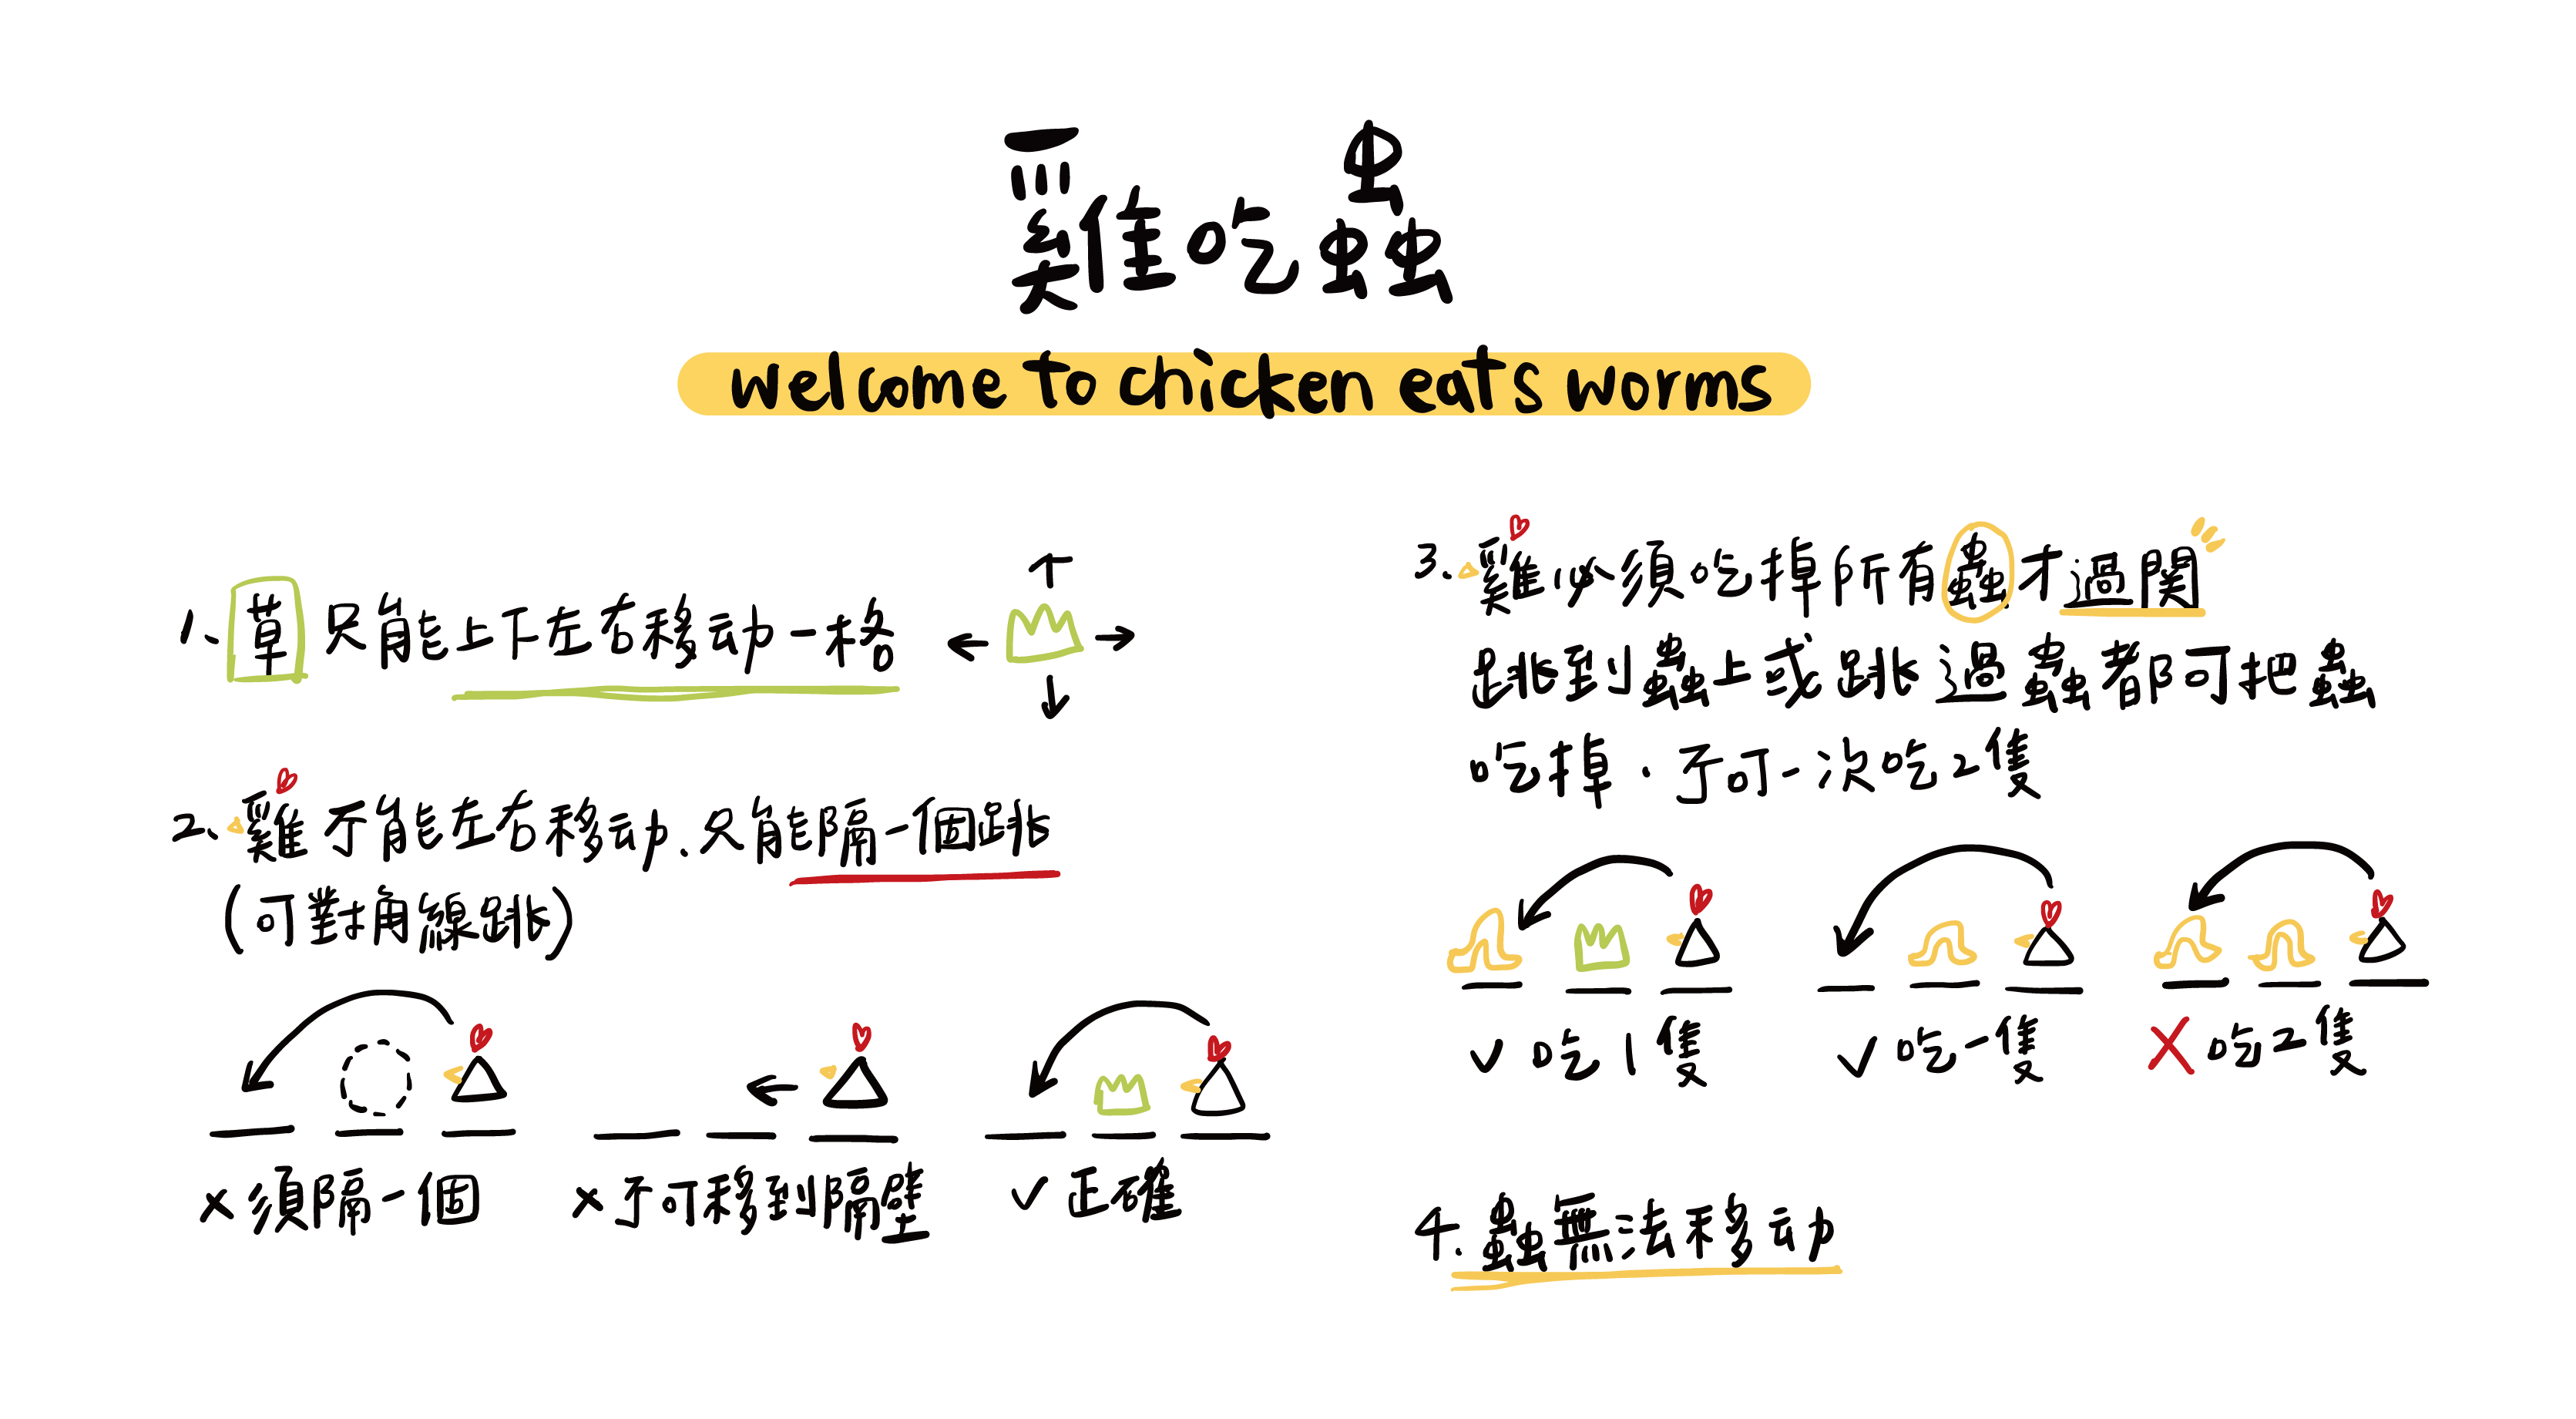 雞吃蟲
welcome to chicken eats worms
1、草只能上下左右移动一格
2、雞不能左右移动、只能隔一個跳
(可對角線跳)
× 須隔一個
× 不可移到隔壁
✓ 正確
3.雞必須吃掉所有蟲才過関
跳到蟲上或跳過蟲都可把蟲
吃掉.不可一次吃2隻
✓ 吃1隻
✓ 吃一隻
× 吃2隻
4.蟲無法移动